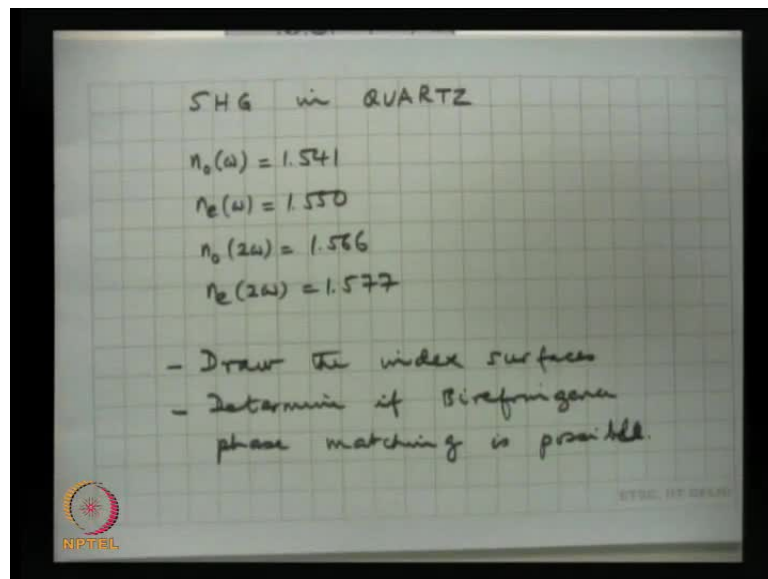 SHG in QUARTZ
n₀(ω) = 1.541
nₑ(ω) = 1.550
n₀(2ω) = 1.566
nₑ(2ω) = 1.577
- Draw the index surfaces
- Determine if Birefringence
phase matching is possible.
ETSC, IIT DELHI
NPTEL